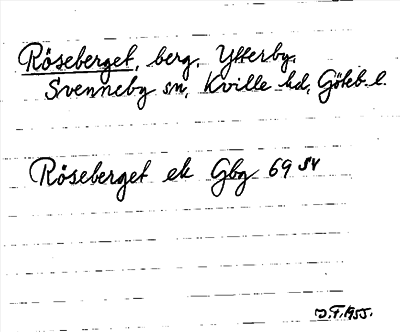 Röseberget, berg, Ytterby,
Svenneby sn, Kville hd, Göteb. l.
Röseberget ek Gbg 69 SV
J.F. 1955.